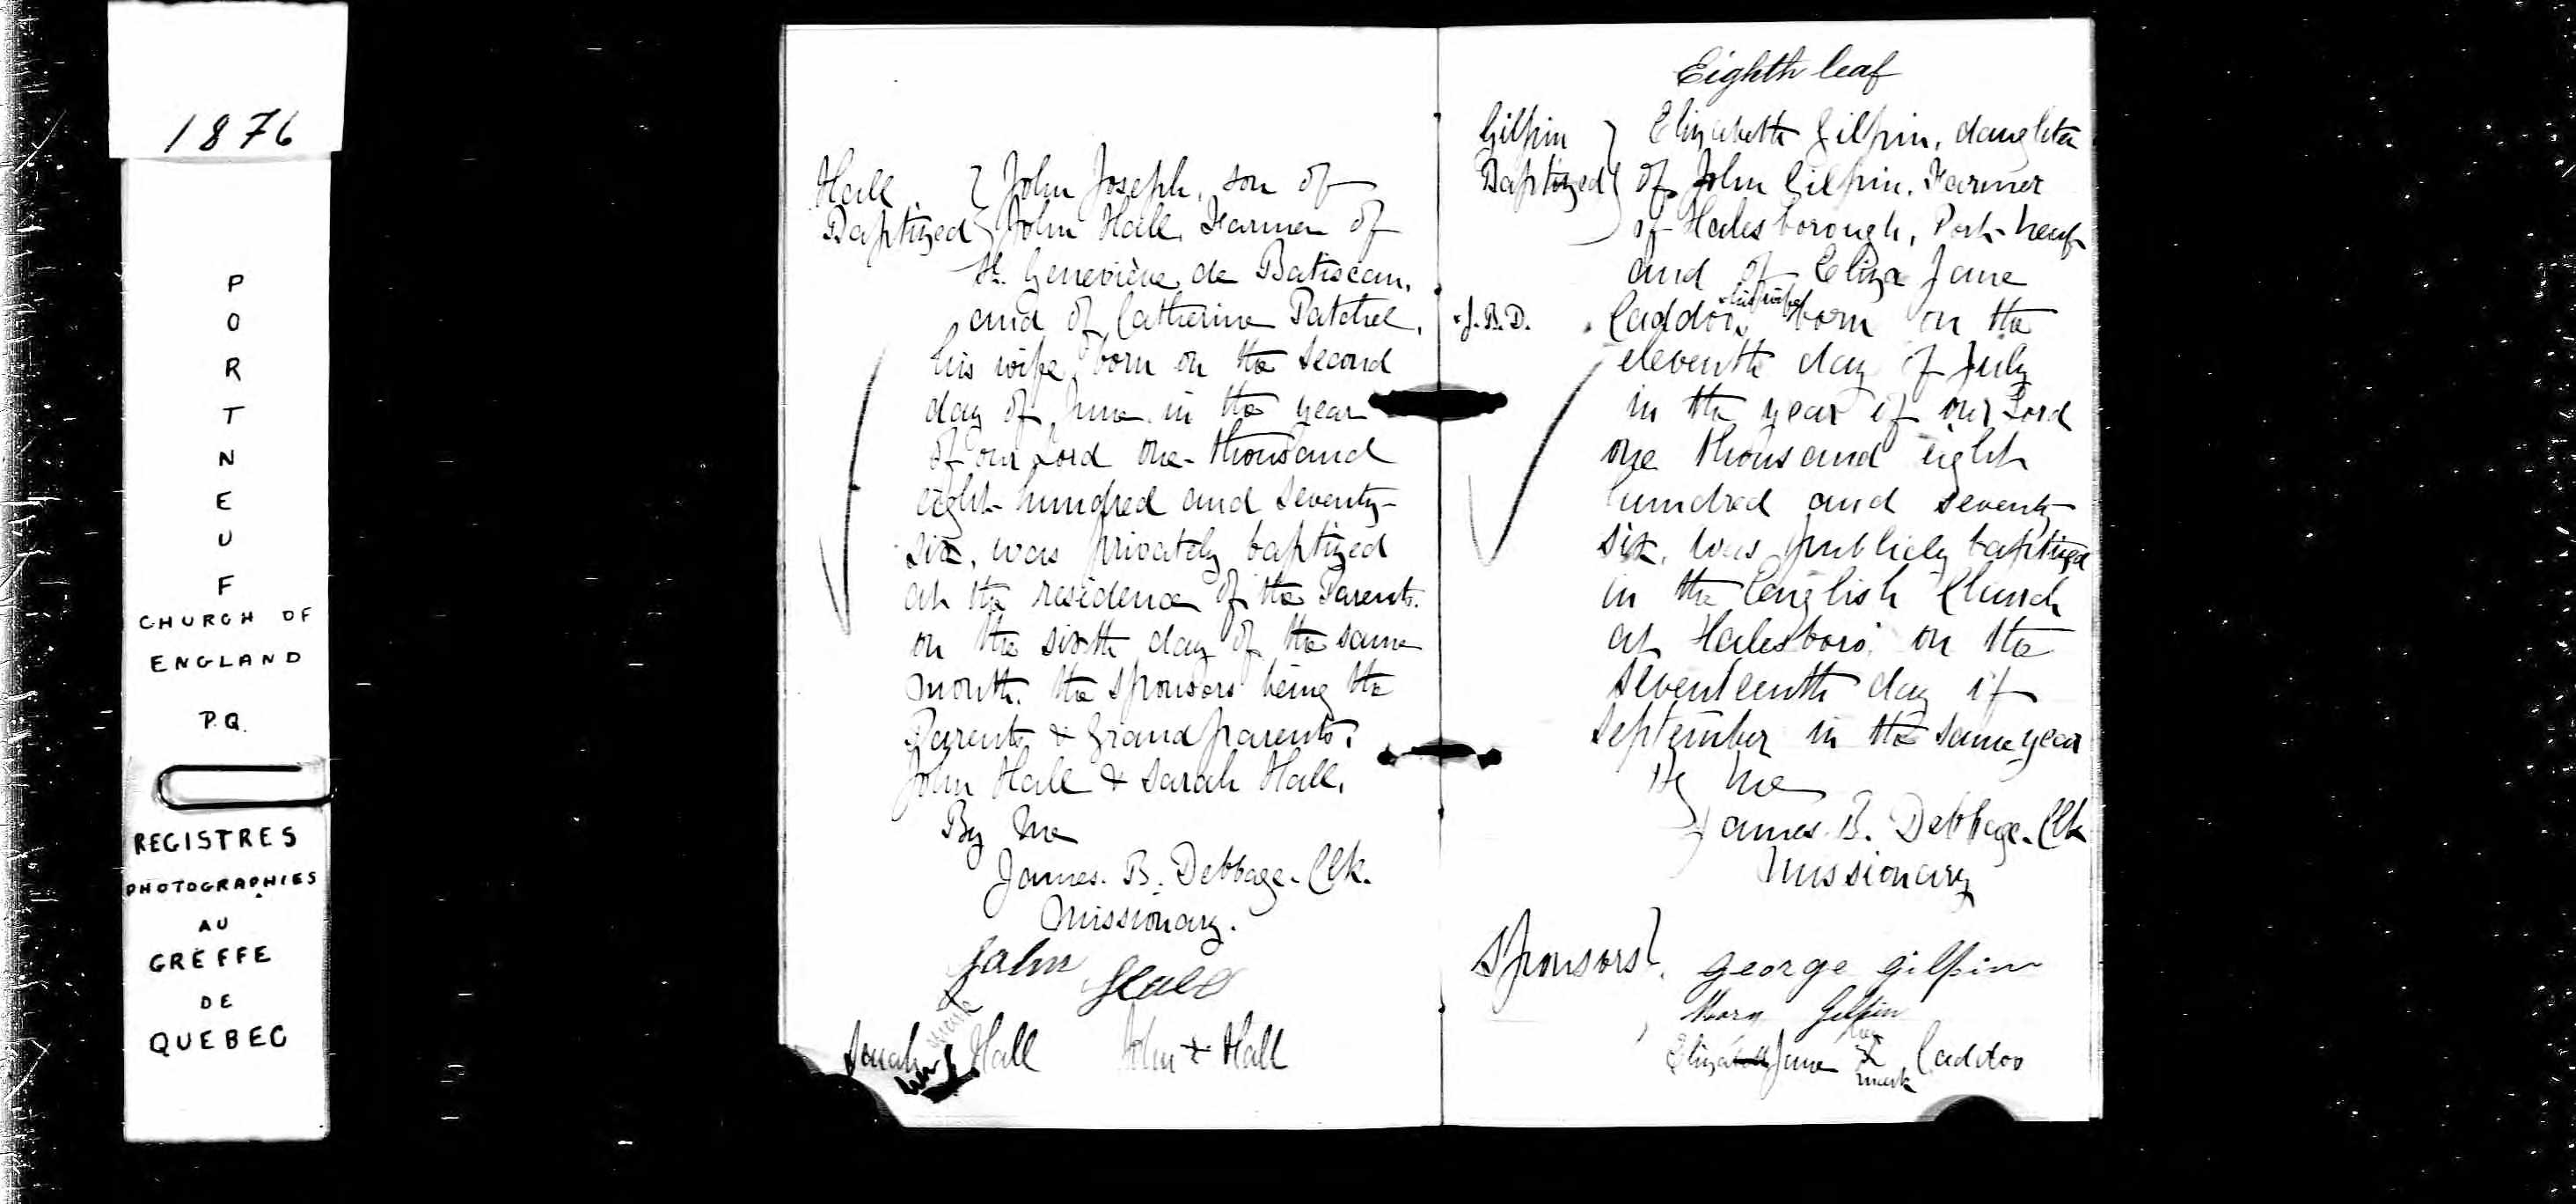 1876
PORTNEUF
CHURCH OF
ENGLAND
P.Q.
REGISTRES
PHOTOGRAPHIES
AU
GREFFE
DE
QUEBEC
Hall
Baptized
John Joseph, son of
John Hall, Farmer of
St. Geneviève de Batiscan,
and of Catherine Patchel,
his wife, born on the second
day of June in the year
of our Lord one-thousand
eight-hundred and seventy-
six, was privately baptized
at the residence of the Parents.
on the sixth day of the same
month. the sponsors being the
Parents & Grandparents.
John Hall & Sarah Hall.
By me
James. B. Debbage. Clk.
Missionary.
John Hall
Sarah X Hall John + Hall
her mark
Eighth leaf
Gilpin
Baptized
Elizabeth Gilpin, daughter
of John Gilpin. Farmer
of Halesborough, Port-neuf
and of Eliza Jane
J.B.D. Caddoo, his wife born on the
eleventh day of July
in the year of our Lord
one thousand eight
hundred and seventy
six, was publicly baptized
in the English Church
at Halesboro' on the
seventeenth day of
September in the same year
By me
James. B. Debbage. Clk
Missionary
Sponsors. George Gilpin
Mary Gilpin
Eliza Jane her X mark Caddoo